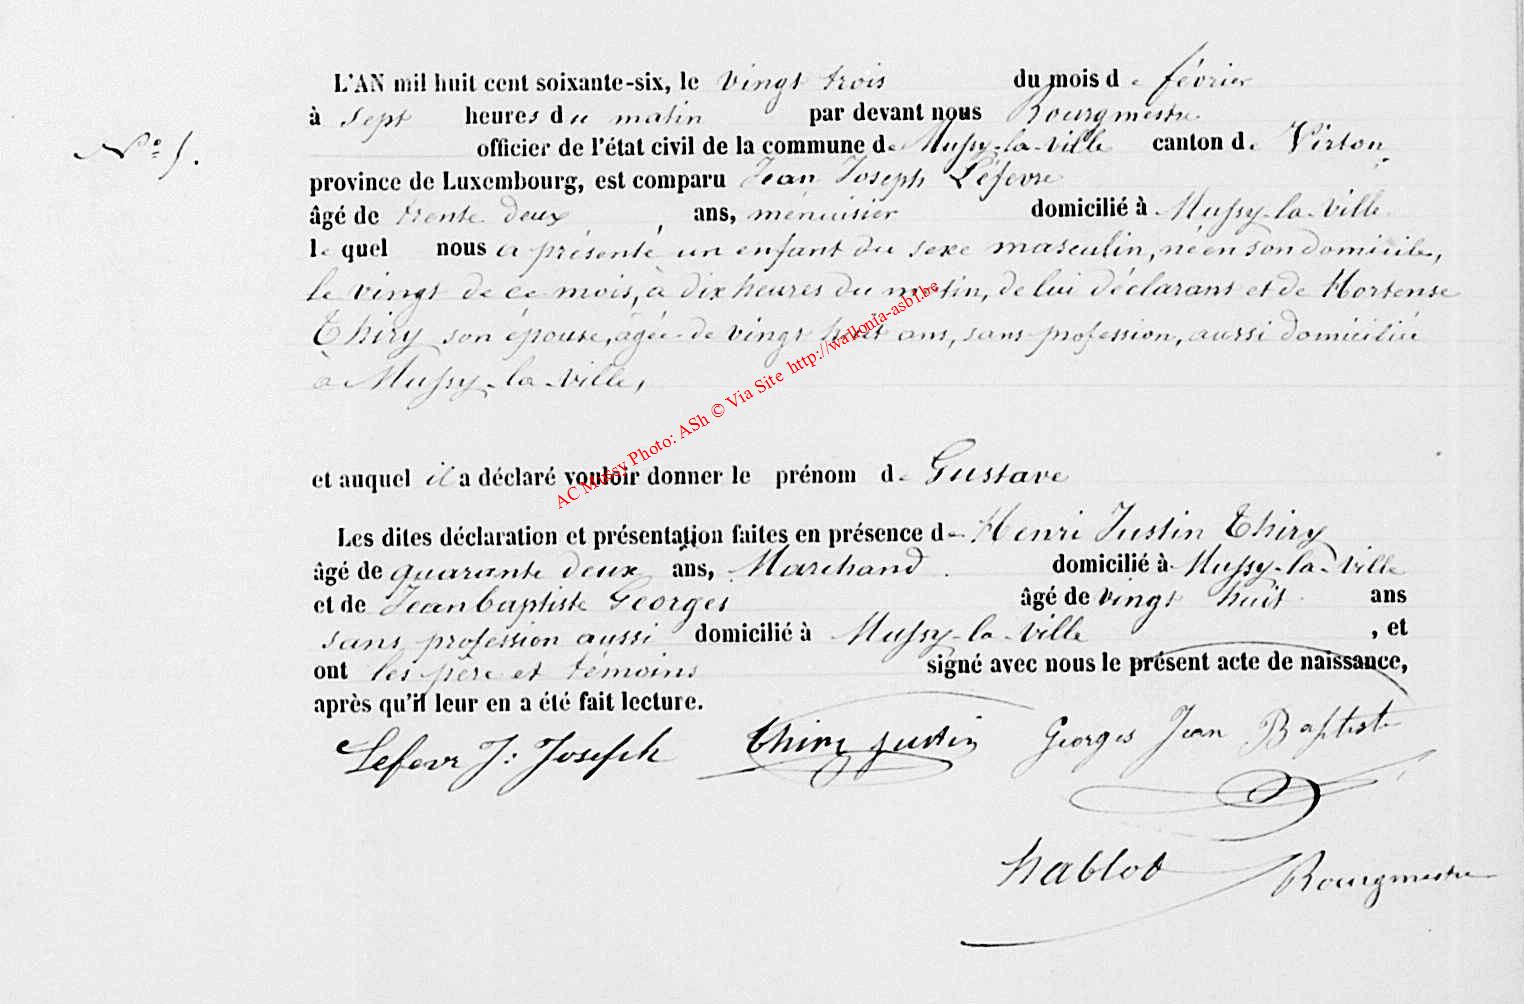 L'AN mil huit cent soixante-six, le vingt trois du mois de février
à sept heures du matin par devant nous Bourgmestre
N° 5. officier de l'état civil de la commune de Mussy-la-Ville canton de Virton,
province de Luxembourg, est comparu Jean Joseph Lefevre
âgé de trente deux ans, menuisier domicilié à Mussy-la-Ville
le quel nous a présenté un enfant du sexe masculin, né en son domicile,
le vingt de ce mois, à dix heures du matin, de lui déclarant et de Hortense
Thiry son épouse, âgée de vingt huit ans, sans profession, aussi domiciliée
à Mussy-la-Ville,
et auquel il a déclaré vouloir donner le prénom de Gustave
Les dites déclaration et présentation faites en présence de Henri Justin Thiry
âgé de quarante deux ans, Marchand domicilié à Mussy-la-Ville
et de Jean baptiste Georges âgé de vingt huit ans
sans profession aussi domicilié à Mussy-la-Ville , et
ont les père et témoins signé avec nous le présent acte de naissance,
après qu'il leur en a été fait lecture.
Lefevr J: Joseph Thiry Justin Georges Jean Baptiste
hablot Bourgmestre
AC Mussy Photo: ASh © Via Site http://wallonia-asbl.be